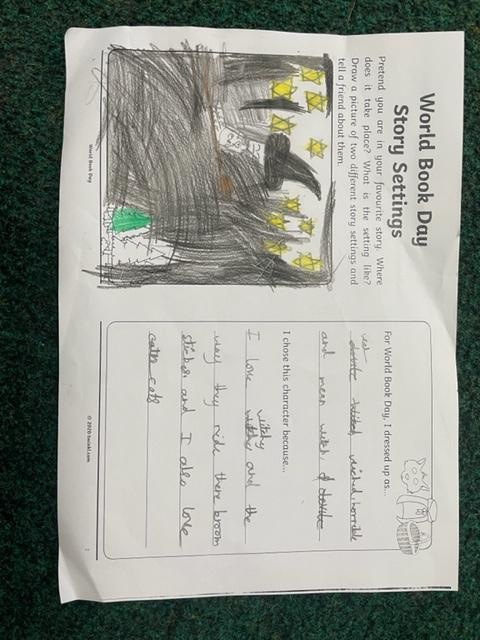 World Book Day
Story Settings
Pretend you are in your favourite story. Where
does it take place? What is the setting like?
Draw a picture of two different story settings and
tell a friend about them.
World Book Day
For World Book Day, I dressed up as...
wicked, horrible
and mean witch
I chose this character because...
witchy
I love and the
way they ride there broom
sticks. and I also love
cats
© 2020 twinkl.com
2